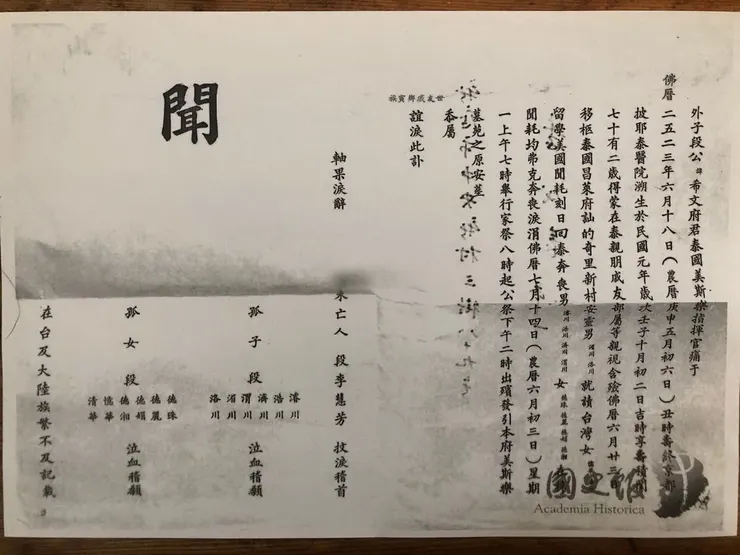 外子段公諱希文府君泰國美斯樂指揮官痛于
佛曆二五二三年六月十八日（農曆庚申五月初六日）丑時壽終京都
披耶泰醫院溯生於民國元年歲次壬子十月初二日吉時享壽積閏
七十有二歲得蒙在泰親朋戚友部屬等親視含殮佛曆六月廿三日
移柩泰國昌萊府訕的奇里新村安靈男 就請台灣女
留學美國聞耗刻日回泰奔喪男 女
聞耗均弗克奔喪淚涓佛曆七月十四日（農曆六月初三日）星期
一上午七時舉行家祭八時起公祭下午二時出殯發引本府美斯樂
墓苑之原安塟
忝屬
世友戚鄉寅族
誼淚此訃
聞
軸果淚辭
未亡人 段李慧芳 抆淚稽首
孤子段 濬川 浩川 濟川 渭川 湄川 洛川 泣血稽顙
孤女段 德珠 德麗 德娟 德湘 懷華 清華 泣血稽顙
在台及大陸族繁不及記載
國史館
Academia Historica